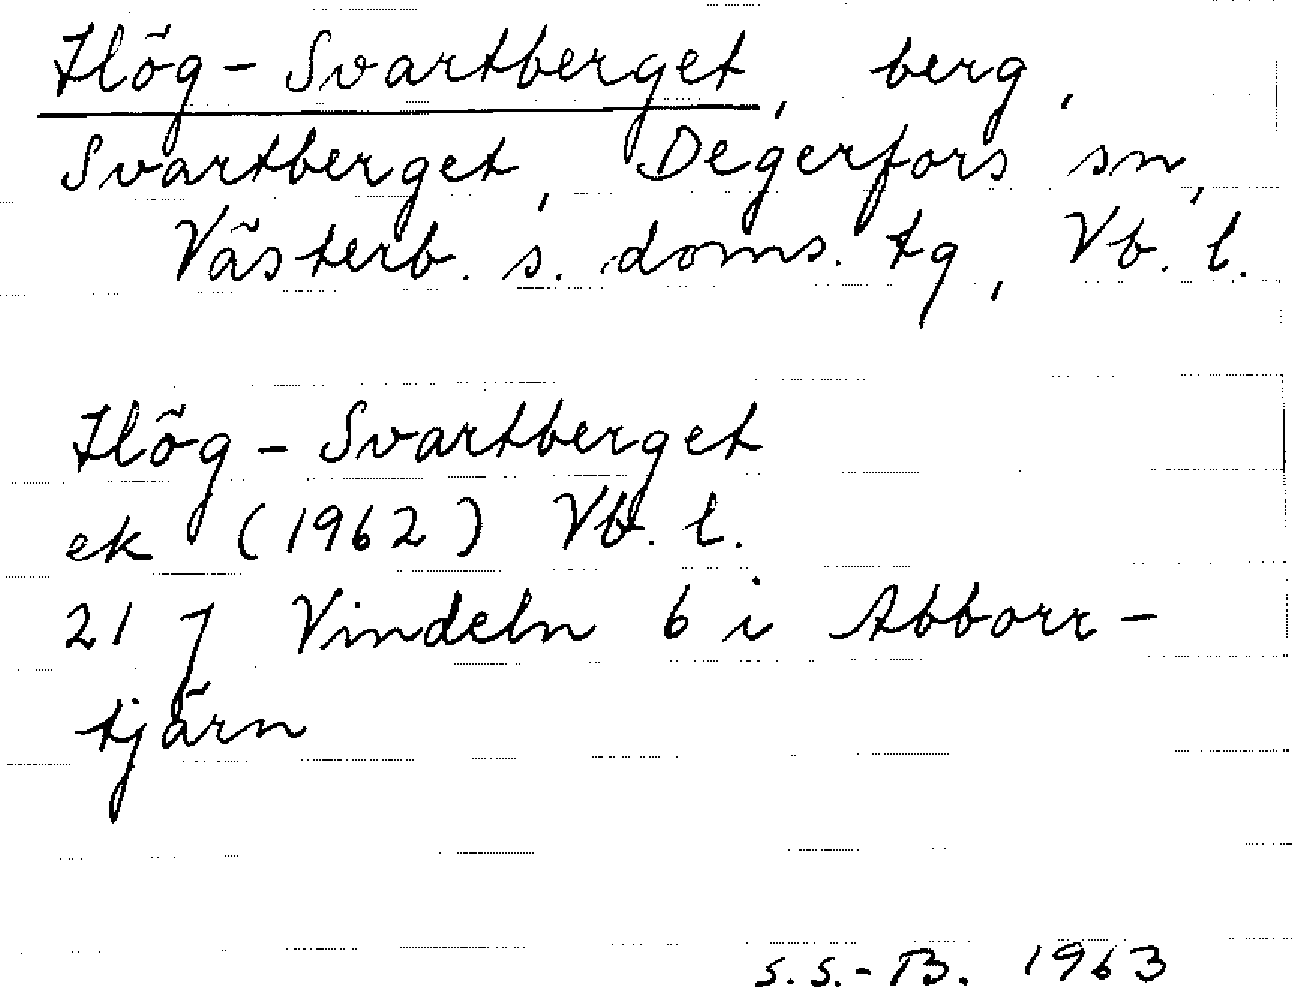 Hög-Svartberget, berg,
Svartberget, Degerfors sn,
Västerb. s. doms. tg, Vb. l.
Hög-Svartberget
ek (1962) Vb. l.
21 J Vindeln 6 i Abborr-
tjärn
S.S.-B. 1963